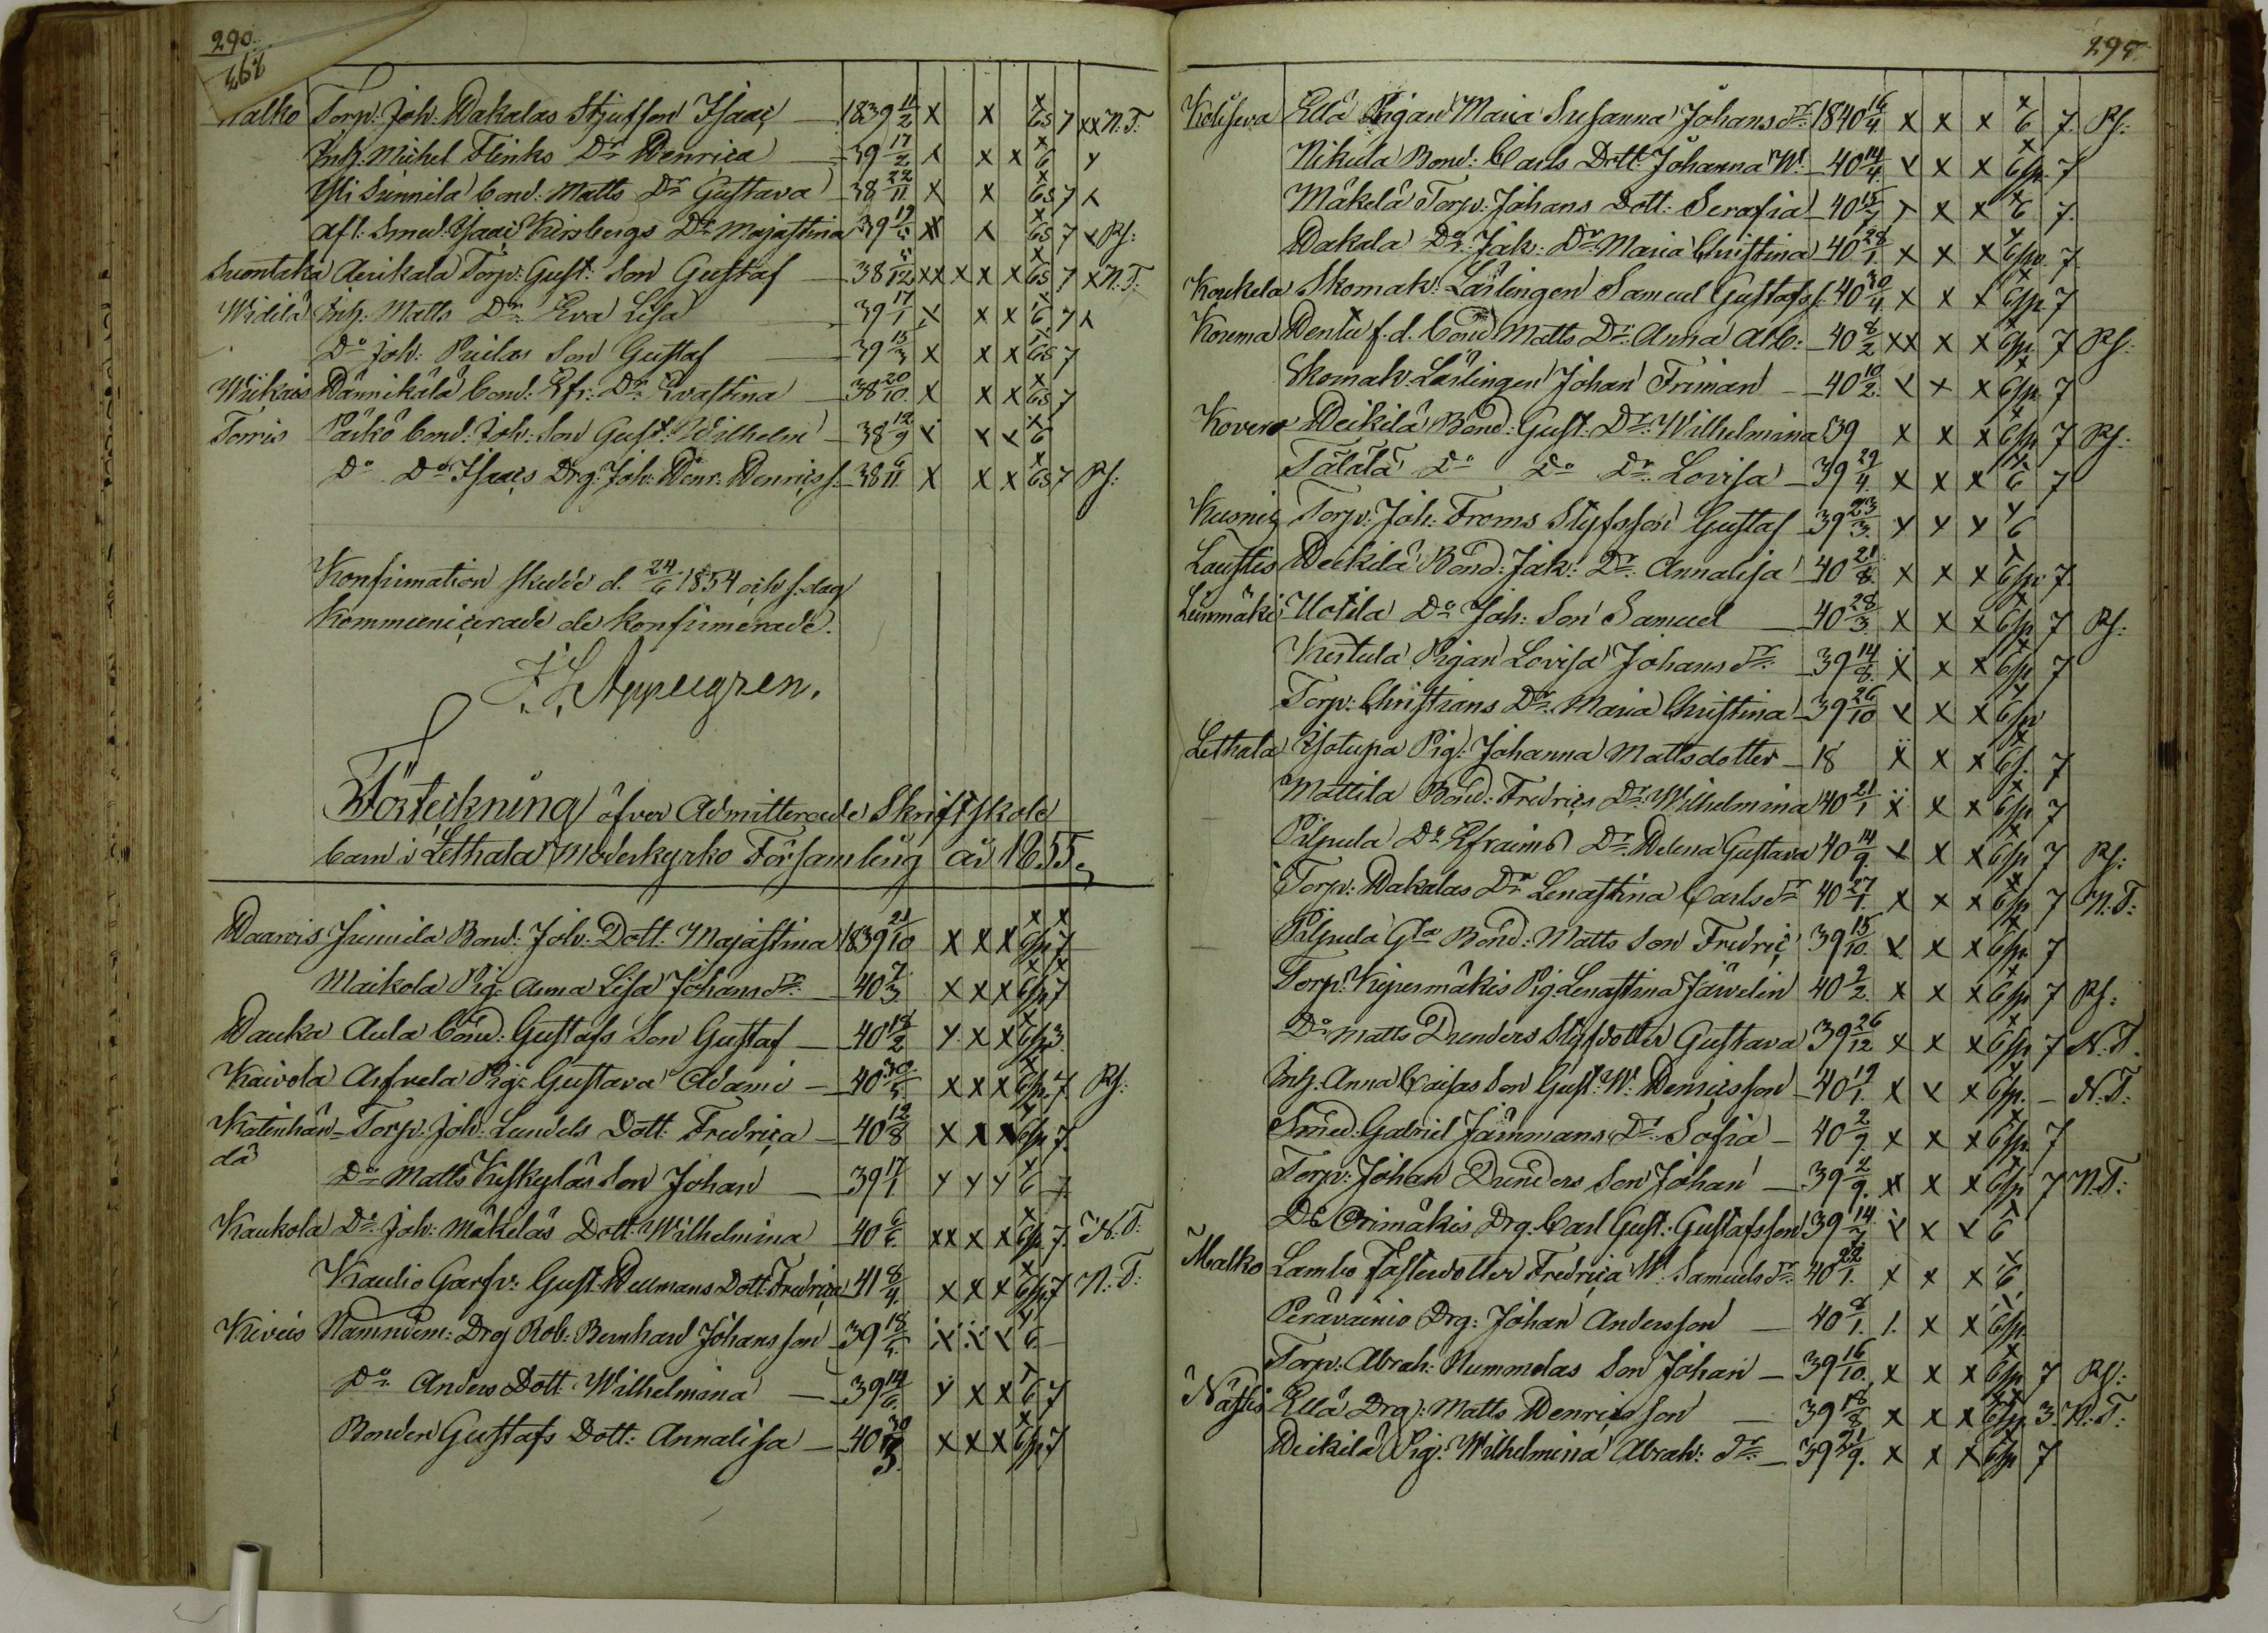 290.
Malko Torp: Joh: Hakalas Stjufson Isaac — 1839 11/2 x x x 65 7 xx N.T.
Inh: Michel Flinks Dr Henrica — 39 17/2 x x x x 6 x
Yli Sunnila bond: Matts Dr Gustava — 38 22/11 x x x 65 7 x
afl. Smed. Isaac Kirsbergs Dr Majastina 39 x x 65 7 x Rs:
Suontaka Aerikala Torp: Gust: Son Gustaf — 38 xx x x x 65 7 x N.T.
Widilä Inh: Matts Dr Eva Lisa — 39 17/1 x x x 6 7 x
Do Joh: Son Gustaf — 39 15/3 x x x 65 7
Hännikälä bond: Efr: Dr Evastina — 38 20/10 x x x 65 7
Torris bond: Joh: Son Gust: Wilhelm — 38 19/9 x x x 6
Do Do Isaacs Drg: Joh: Henr: Henricss. — 38 6/11 x x x 65 7 Rs:
Konfirmation skedde d. 24/6 1854 och s. dag
kommunicerade de konfirmerade.
Förteckning öfver Admitterade Skriftskole
barn i Lethala Moderkyrko Församling år 1855.
Haarois Junnila Bond: Joh: Dott: Majastina 1839 21/10 x x x 6sp 7
Maikola Pig: Anna Lisa Johans dr — 40 7/3 x x x 6sp 7
Hauka Aula bond: Gustafs Son Gustaf — 40 18/2 x x x 6sp 3
Kaivola Pig: Gustava Adami — 40 30/5 x x x 6sp. 7 Rs:
Katinhän- Torp: Joh: Lundels Dott: Fredrica — 40 12/8 x x x 6sp 7.
dä
Do Matts Kiskyläs Son Johan — 39 17/1 x x x 6 7
Kaukola Do Joh: Mäkeläs Dott: Wilhelmina — 40 6/6 xx x x 6sp 7. N.T:
Kaulio Garfv: Gust: Hellmans Dott: Fredrica — 41 8/4 x x x 6sp 7 N.T:
Kiviis Nämndem: Drg Rob: Bernhard Johansson — 39 18/5 x x x 6 —
Do Anders Dott: Wilhelmina — 39 14/6 x x x 6 7
Bonden Gustafs Dott: Annalisa — 40 x x x 6sp 7
295.
Koliseva Ellä Pigan Maria Susanna Johans dr 1840 16/4 x x x 6 7 Rs:
Nikula Bond: Carls Dott: Johanna W. — 40 14/4 x x x 6sp. 7
Mäkelä Torp: Johans Dott: Serafia — 40 15/7 x x x 6 7.
Hakala Do Jak: Dr Maria Christina — 40 28/1 x x x 6sp. 7
Koukela Skomak: Lärlingen Samuel Gustafss. 40 30/4 x x x 6sp. 7
Kouma Hentu f.d. bond Matts Dr Anna Alb: — 40 8/2 xx x x 6sp. 7 Rs:
Skomak: Lärlingen Johan Friman — 40 10/2 x x x 6sp. 7
Kovero Heikilä Bond: Gust: Dr Wilhelmina 39 x x x 6sp 7 Rs:
Tälälä Do Do Dr Lovisa — 39 29/4 x x x 6 7
Kusnig Torp: Joh: Froms Styfsson Gustaf — 39 23/3 x x x 6
Laustis Heikilä Bond: Jak: Dr Annalisa — 40 21/8 x x x 6sp. 7.
Uotila Do Joh: Son Samuel — 40 28/3 x x x 6sp 7 Rs:
Kertula Pigan Lovisa Johans dr — 39 14/8 x x x 6sp 7
Torp: Christians Dr Maria Christina — 39 26/10 x x x 6sp
Lethala Isotupa Pig: Johanna Mattsdotter — 18 x x x 6s. 7
Mattila Bond: Fredrics Dr Wilhelmina 40 21/1 x x x 6sp 7
Pilpula Do Efraims Dr Helena Gustava 40 14/9 x x x 6sp 7 Rs:
Torp: Hakalas Dr Lenastina Carls dr 40 27/1 x x x 6sp 7 N.T:
Pilpula Gla Bond: Matts Son Fredric 39 15/10 x x x 6sp 7
Torp: Pig: Lenastina Järvelin 40 2/2 x x x 6sp 7 Rs:
Do Matts Drunders Styfdotter Gustava 39 26/12 x x x 6sp 7 N.T.
Inh: Anna Caisas Son Gust: W: Henricsson — 40 19/1 x x x 6sp. — N.T:
Smed. Gabriel Jämmans Dr Sofia — 40 2/9 x x x 6sp. 7
Torp: Johan Drunders Son Johan — 39 2/9 x x x 6sp 7 N.T:
Do Orimäkis Drg: Carl Gust: Gustafsson 39 14/7 x x x 6
Malko Lambo Fästedotter Fredrica W: Samuels dr 40 22/1 x x x 6
Perävainio Drg: Johan Andersson — 40 8/1 x x x 6sp.
Torp: Abrah: Nummelas Son Johan — 39 16/10 x x x 6sp 7 Rs:
Ellä Drg: Matts Henricsson — 39 18/8 x x x 6sp 3. N.T:
Heikilä Pig: Wilhelmina Abrah: dr — 39 21/9 x x x 6sp 7